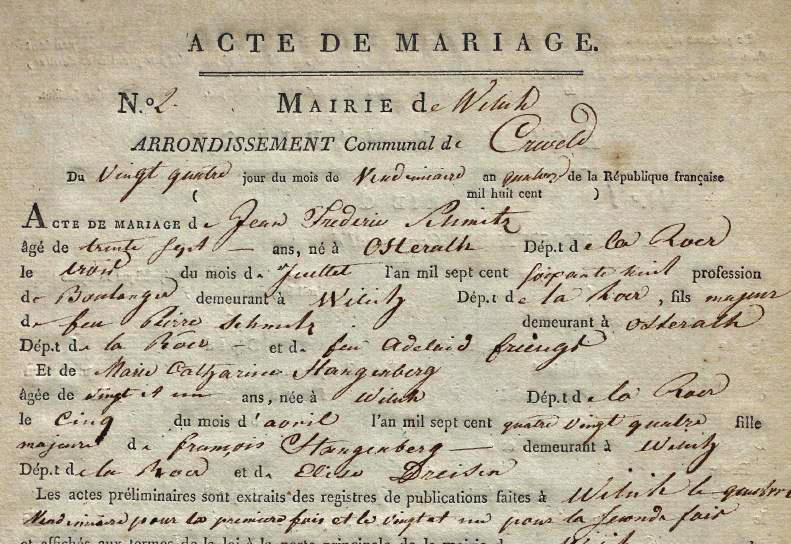 ACTE DE MARIAGE.
N.o 2. MAIRIE de Wilich
ARRONDISSEMENT Communal de Creveld
Du vingt quatre jour du mois de Vendemiaire an quatorze de la République française
( mil huit cent )
ACTE DE MARIAGE de Jean Frederic Schmitz
âgé de trente sept — ans, né à Osterath Dép.t de la Roer
le trois du mois de Juillet l'an mil sept cent soixante huit profession
de Boulanger demeurant à Wilich Dép.t de la Roer, fils majeur
de feu Pierre Schmitz demeurant à Osterath
Dép.t de la Roer — et de feu Adelaid
Et de Marie Catharine Stangenberg
âgée de vingt et un ans, née à Wilich Dép.t de la Roer
le cinq du mois d'avril l'an mil sept cent quatre vingt quatre fille
majeure de françois Stangenberg — demeurant à Wilich
Dép.t de la Roer et de Elise Dreisen
Les actes préliminaires sont extraits des registres de publications faites à Wilich le quatorze
Vendemiaire pour la premiere fois et le vingt et un pour la seconde fois
et affichés aux termes de la loi à la porte principale de la mairie de